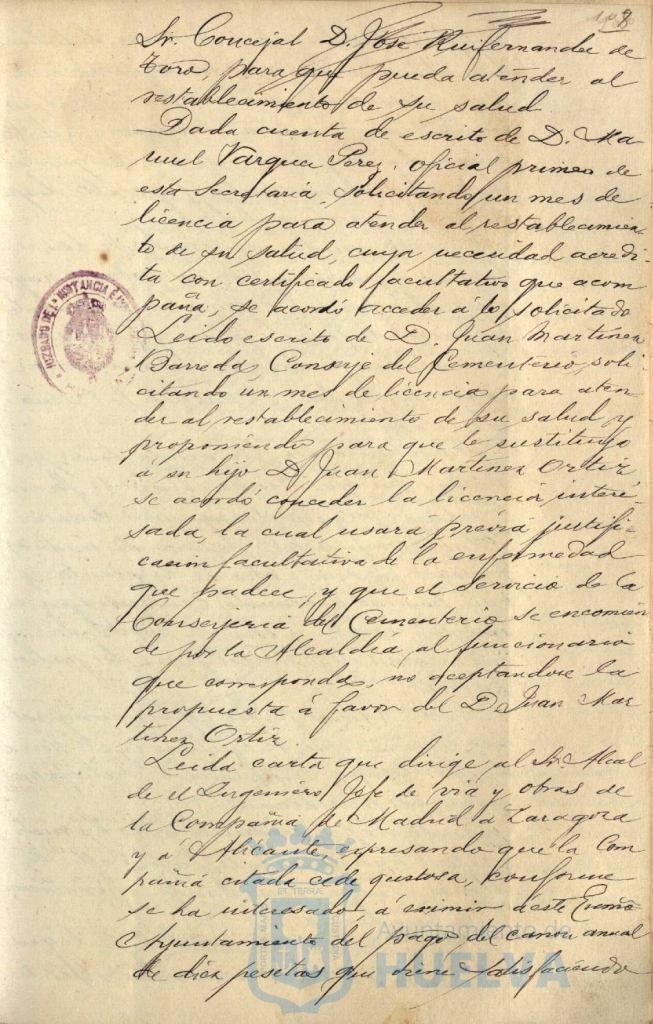 8
Sr. Concejal D. José Ruifernandez de
Toro, para que pueda atender al
restablecimiento de su salud.
Dada cuenta de escrito de D. Ma
nuel Vazquez Perez, oficial primero de
esta Secretaria, solicitando un mes de
licencia para atender al restablecimien
to de su salud, cuya necesidad acredi-
ta con certificado facultativo que acom
paña, se acordó acceder á lo solicitado
Leido escrito de D. Juan Martinez
Barreda, Conserje del Cementerio, soli
citando un mes de licencia para aten-
der al restablecimiento de su salud y
proponiendo para que le sustituya
á su hijo D. Juan Martinez Ortiz
se acordó conceder la licencia intere-
sada, la cual usará prévia justifi-
cacion facultativa de la enfermedad
que padece, y que el servicio de la
Conserjeria del Cementerio se encomien
de por la Alcaldía, al funcionario
que corresponda, no aceptandose la
propuesta á favor del D. Juan Mar
tinez Ortiz.
Leida carta que dirige al Sr. Alcal
de el Ingeniero Jefe de via y obras de
la Compañia de Madrid á Zaragoza
y á Alicante, expresando que la Com
pañia citada cede gustosa, conforme
se ha interesado, á eximir á este Excmo
Ayuntamiento del pago del canon anual
de diez pesetas que viene satisfaciendo
JUZGADO DE 1ª INSTANCIA É
Ayuntamiento de
HUELVA